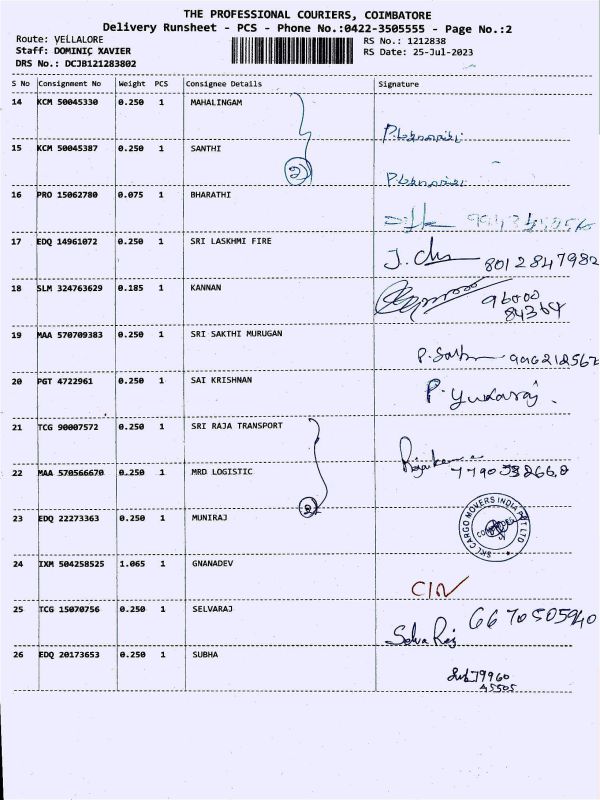 THE PROFESSIONAL COURIERS, COIMBATORE
Delivery Runsheet - PCS - Phone No.:0422-3505555 - Page No.:2
Route: VELLALORE
RS No.: 1212838
Staff: DOMINIC XAVIER
RS Date: 25-Jul-2023
DRS No.: DCJB121283802
S No Consignment No Weight PCS Consignee Details Signature
14 KCM 50045330 0.250 1 MAHALINGAM
15 KCM 50045387 0.250 1 SANTHI
2
16 PRO 15062780 0.075 1 BHARATHI
17 EDQ 14961072 0.250 1 SRI LASKHMI FIRE J. 8012847982
18 SLM 324763629 0.185 1 KANNAN 96000
84364
19 MAA 570709383 0.250 1 SRI SAKTHI MURUGAN
20 PGT 4722961 0.250 1 SAI KRISHNAN P. Yuvaraj.
21 TCG 90007572 0.250 1 SRI RAJA TRANSPORT
22 MAA 570566670 0.250 1 MRD LOGISTIC
2
23 EDQ 22273363 0.250 1 MUNIRAJ SKL CARGO MOVERS INDIA PVT LTD
24 IXM 504258525 1.065 1 GNANADEV
25 TCG 15070756 0.250 1 SELVARAJ Selva Raj 6670505940
26 EDQ 20173653 0.250 1 SUBHA 79960
45505